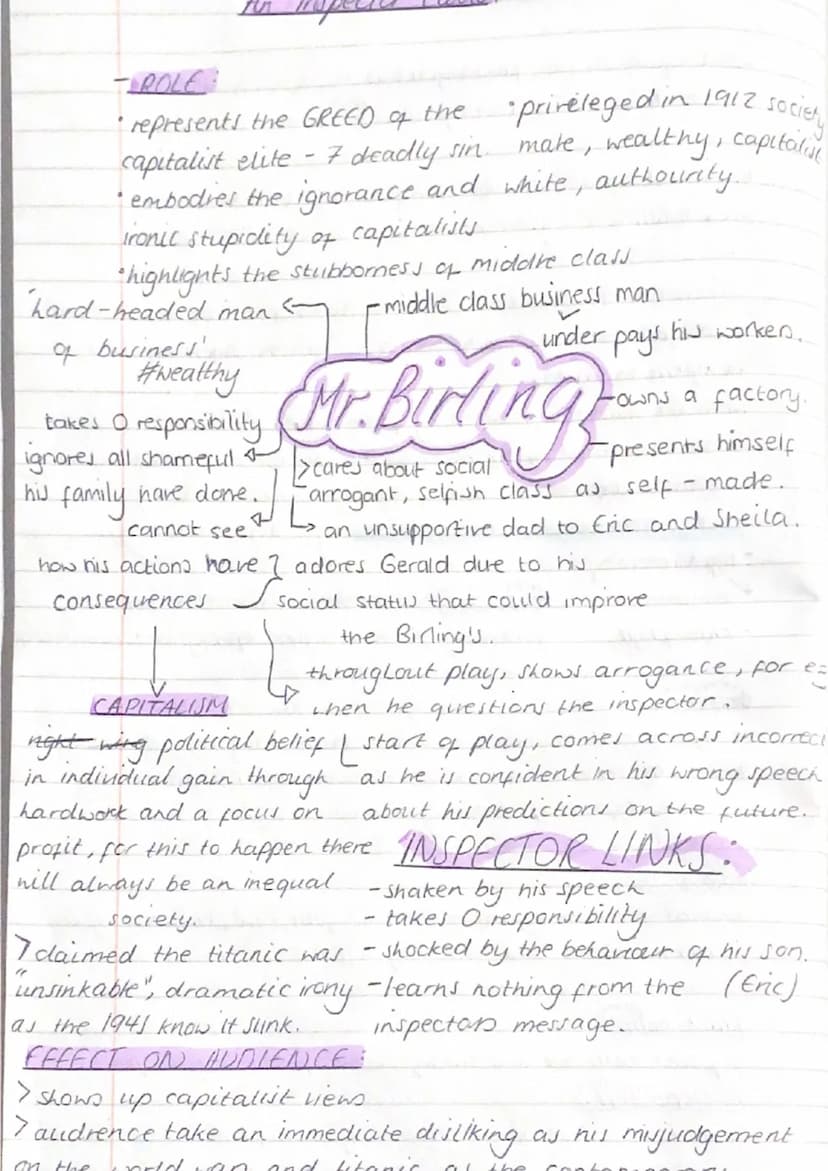 An Inspector Calls
- ROLE:
• represents the GREED of the
capitalist elite - 7 deadly sin.
• embodies the ignorance and
ironic stupidity of capitalists
• highlights the stubborness of middle class
• privileged in 1912 society
male, wealthy, capitalist
white, authourity.
'hard-headed man
of business'
#wealthy
middle class business man
under pays his workers.
Mr. Birling
owns a factory.
presents himself
as self-made.
takes 0 responsibility
ignores all shameful
his family have done.
cannot see
how his actions have
consequences
> cares about social
class
arrogant, selfish
an unsupportive dad to Eric and Sheila.
adores Gerald due to his
social status that could improve
the Birling's.
throughout play, shows arrogance, for eg
when he questions the inspector.
start of play, comes across incorrect
as he is confident in his wrong speech
about his predictions on the future.
CAPITALISM
right wing political belief
in individual gain through
hardwork and a focus on
profit, for this to happen there
will always be an inequal
society.
> claimed the titanic was
"unsinkable", dramatic irony
as the 1945 know it sunk.
INSPECTOR LINKS:
- shaken by his speech
- takes 0 responsibility
- shocked by the behaviour of his son.
(Eric)
- learns nothing from the
inspectors message.
EFFECT ON AUDIENCE:
> shows up capitalist views
> audience take an immediate disliking as his misjudgement
on the world war and titanic as the